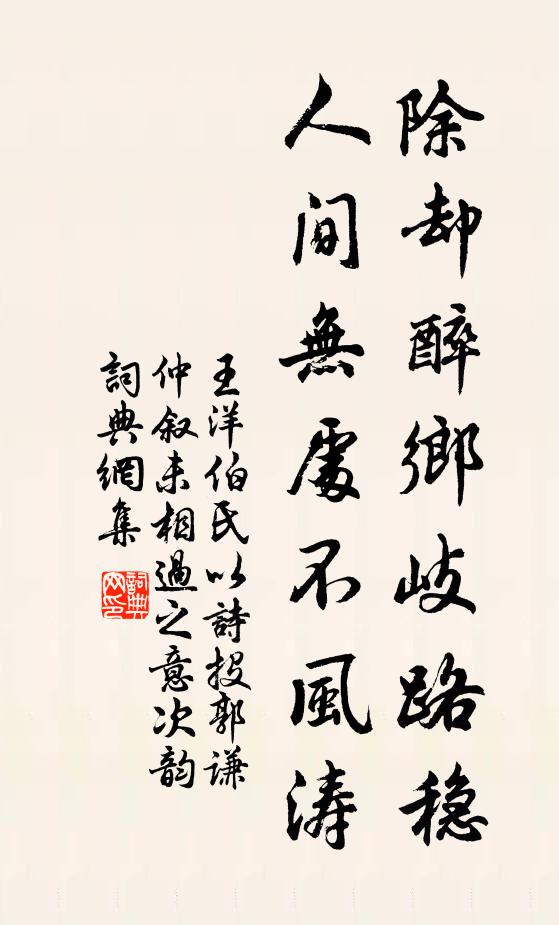 除却醉鄉岐路穩
人间無處不風涛
王洋伯氏以詩投郭谦
仲叙未相過之意次韵
詞典網集
詞典
网印